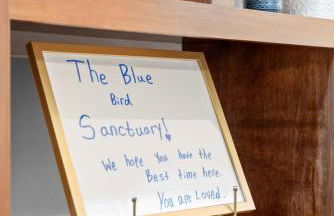 The Blue
Bird
Sanctuary!
We hope you have the
Best time here
You are Loved.